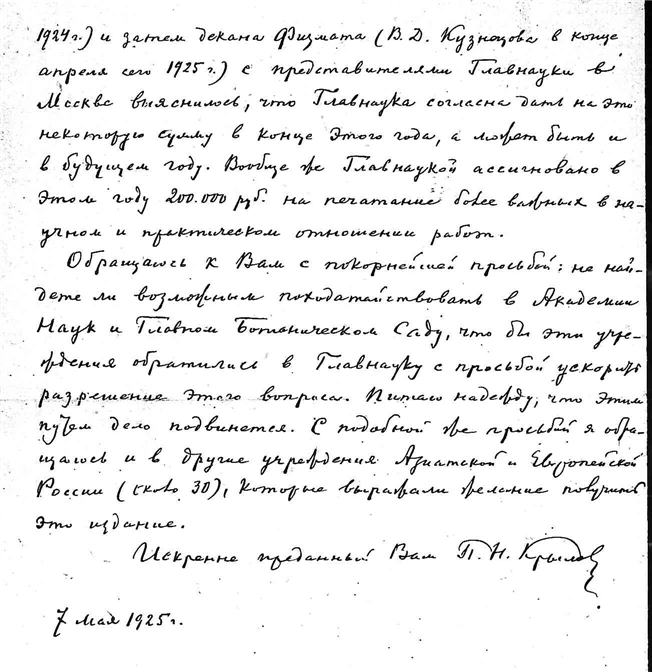 1924 г.) и затем декана Физмата (В. Д. Кузнецова в конце
апреля сего 1925 г.) с представителями Главнауки в
Москве выяснилось, что Главнаука согласна дать на это
некоторую сумму в конце этого года, а может быть и
в будущем году. Вообще же Главнаукой ассигновано в
этом году 200.000 руб. на печатание более важных в на-
учном и практическом отношении работ.
Обращаюсь к Вам с покорнейшей просьбой: не най-
дете ли возможным походатайствовать в Академии
Наук и Главном Ботаническом Саду, что бы эти учре-
ждения обратились в Главнауку с просьбой ускорить
разрешение этого вопроса. Питаю надежду, что этим
путем дело подвинется. С подобной же просьбой я обра-
щаюсь и в другие учреждения Азиатской и Европейской
России (около 30), которые выражали желание получить
это издание.
Искренне преданный Вам П. Н. Крылов
7 мая 1925 г.